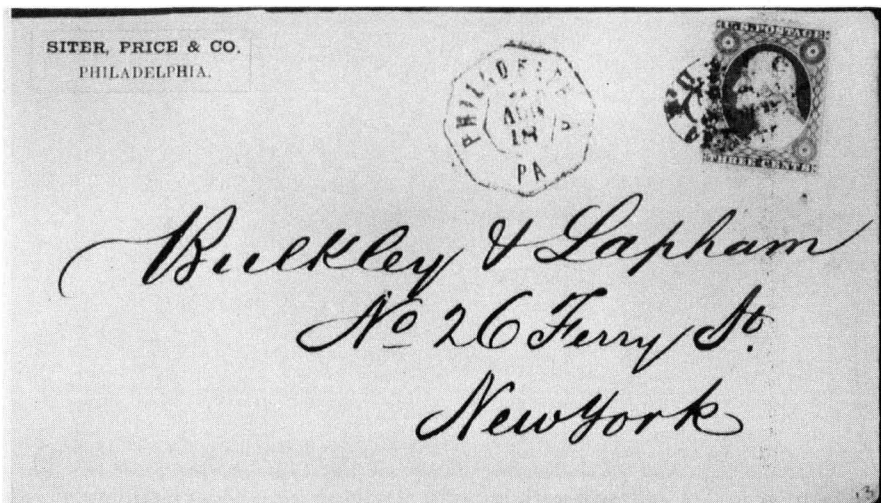 SITER, PRICE & CO.
PHILADELPHIA.
PHILADELPHIA
AUG
18
PA
PAID
U.S. POSTAGE
THREE CENTS
Bulkley & Lapham
No 26 Ferry St.
New York